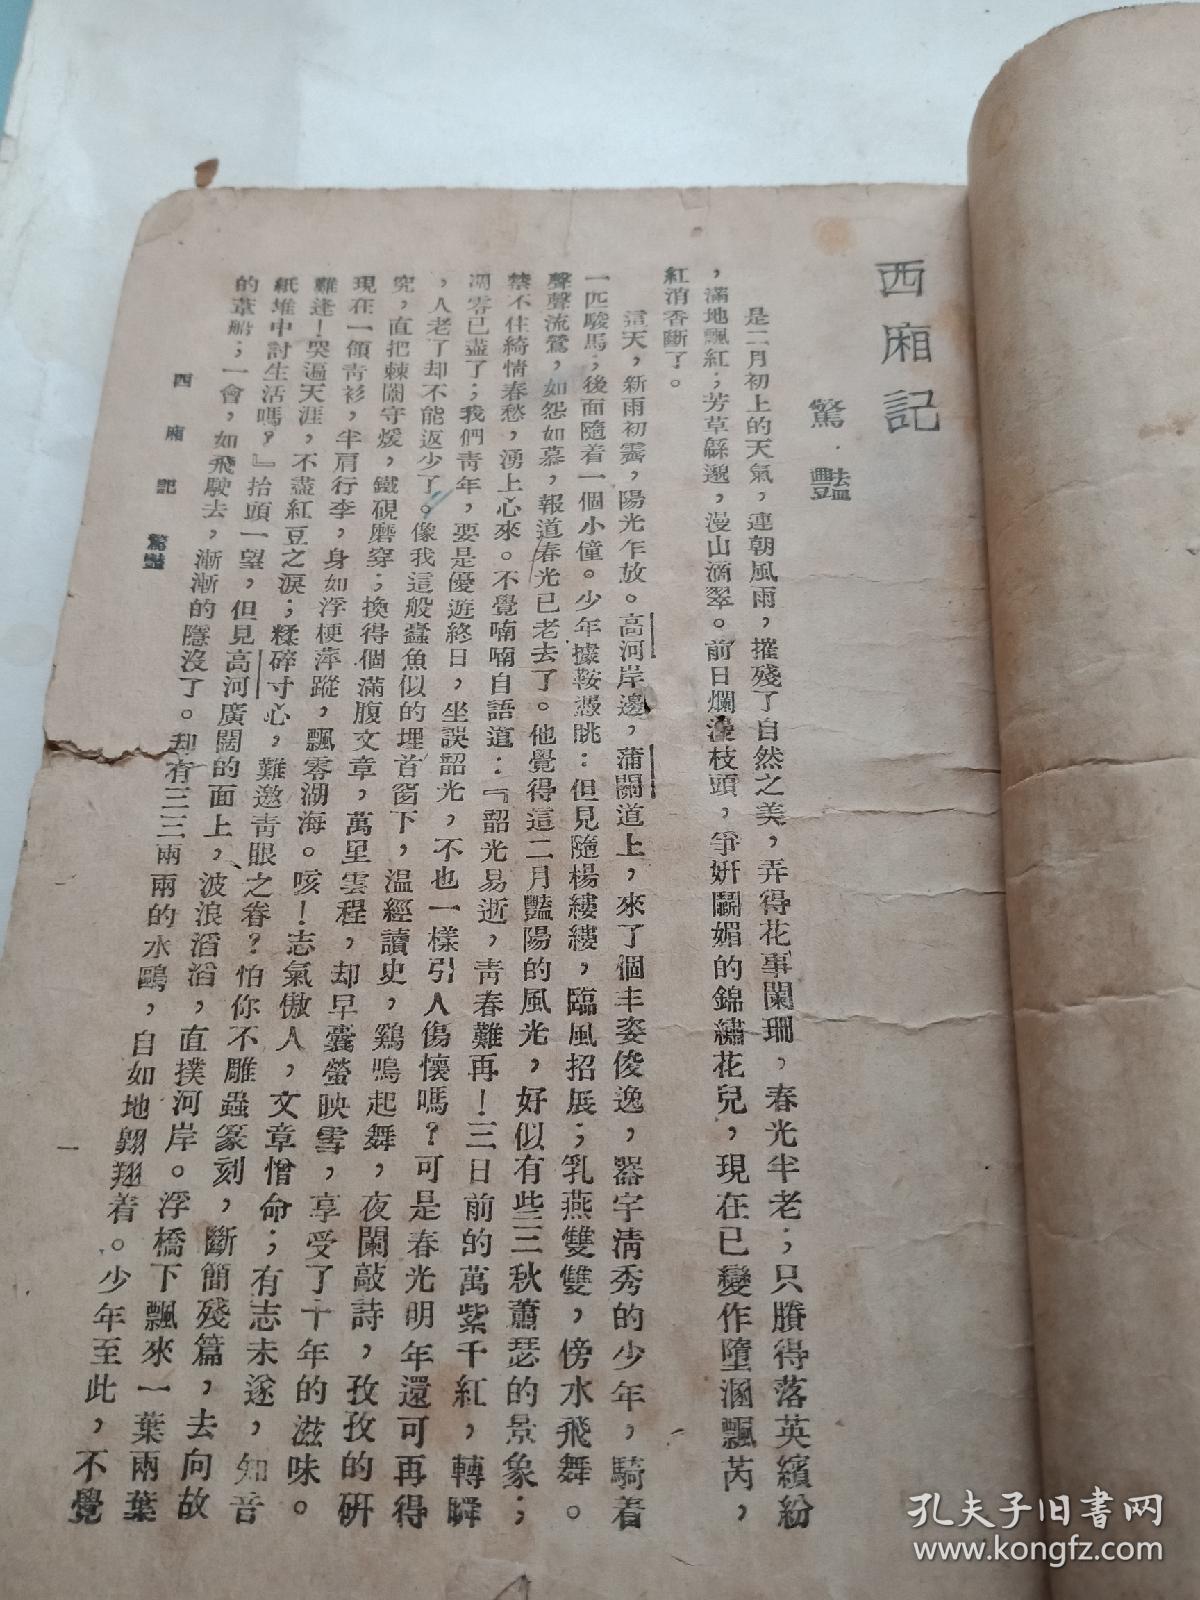 西廂記
驚·豔
是二月初上的天氣，連朝風雨，摧殘了自然之美，弄得花事闌珊，春光半老；只賸得落英繽紛
，滿地飄紅；芳草緜邈，漫山滴翠。前日爛漫枝頭，爭妍鬭媚的錦繡花兒，現在已變作墮溷飄茵，
紅消香斷了。
這天，新雨初霽，陽光乍放。高河岸邊，蒲關道上，來了個丰姿俊逸，器宇清秀的少年，騎着
一匹駿馬；後面隨着一個小僮。少年據鞍憑眺：但見隨楊縷縷，臨風招展；乳燕雙雙，傍水飛舞。
聲聲流鶯，如怨如慕，報道春光已老去了。他覺得這二月豔陽的風光，好似有些三秋蕭瑟的景象；
禁不住綺情春愁，湧上心來。不覺喃喃自語道：『韶光易逝，青春難再！三日前的萬紫千紅，轉瞬
凋零已盡了；我們青年，要是優遊終日，坐誤韶光，不也一樣引人傷懷嗎？可是春光明年還可再得
，人老了却不能返少了。像我這般蠹魚似的埋首窗下，温經讀史，鷄鳴起舞，夜闌敲詩，孜孜的研
究，直把棘闈守煖，鐵硯磨穿；換得個滿腹文章，萬里雲程，却早囊螢映雪，享受了十年的滋味。
現在一領青衫，半肩行李，身如浮梗萍蹤，飄零湖海。咳！志氣傲人，文章憎命；有志未遂，知音
難逢！哭遍天涯，不盡紅豆之淚；糅碎寸心，難邀青眼之眷？怕你不雕蟲篆刻，斷簡殘篇，去向故
紙堆中討生活嗎？』抬頭一望，但見高河廣闊的面上，波浪滔滔，直撲河岸。浮橋下飄來一葉兩葉
的葦船；一會，如飛駛去，漸漸的隱沒了。却有三三兩兩的水鷗，自如地翱翔着。少年至此，不覺
西廂記 驚豔
一
孔夫子旧书网
www.kongfz.com